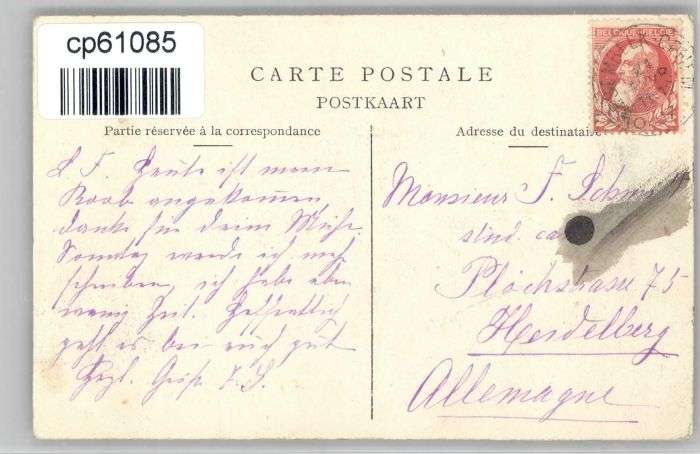 cp61085
BELGIQUE-BELGIË
CARTE POSTALE
POSTKAART
Partie réservée à la correspondance
Adresse du destinataire
L. F. Heute ist mein
Korb angekommen,
danke für deine Mühe.
Sonntag werde ich mehr
schreiben, ich habe eben
wenig Zeit. Hoffentlich
geht es bei euch gut
Herzl. Grüße
Monsieur F.
stud.
Plöckstrasse 75
Heidelberg
Allemagne